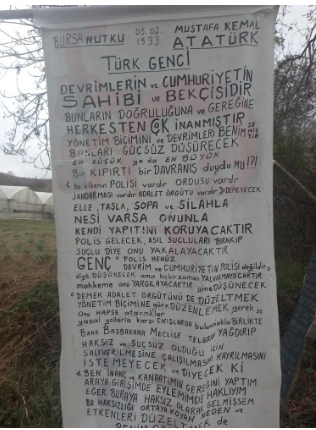 BURSA NUTKU 05.02.1933 MUSTAFA KEMAL ATATÜRK
TÜRK GENCİ
DEVRİMLERİN ve CUMHURİYETİN
SAHİBİ ve BEKÇİSİDİR
BUNLARIN DOĞRULUĞUNA ve GEREĞİNE
HERKESTEN ÇOK İNANMIŞTIR
YÖNETİM BİÇİMİNİ ve DEVRİMLERİ BENİMSEMİŞTİR
BUNLARI GÜÇSÜZ DÜŞÜRECEK
EN KÜÇÜK ya da EN BÜYÜK
Bir KIPIRTI bir DAVRANIŞ duydu MU!?!
bu ülkenin POLİSİ vardır ORDUSU vardır
JANDARMASI vardır ADALET ÖRGÜTÜ vardır DEMEYECEK
ELLE, TAŞLA, SOPA ve SİLAHLA
NESİ VARSA ONUNLA
KENDİ YAPITINI KORUYACAKTIR
POLİS GELECEK, ASIL SUÇLULARI BIRAKIP
SUÇLU DİYE ONU YAKALAYACAKTIR
GENÇ "POLİS HENÜZ
DEVRİM ve CUMHURİYETİN POLİSİ değildir"
diye DÜŞÜNECEK ama hiçbir zaman YALVARMAYACAKTIR
mahkeme onu YARGILAYACAKTIR yine DÜŞÜNECEK
"DEMEK ADALET ÖRGÜTÜNÜ DE DÜZELTMEK
YÖNETİM BİÇİMİNE göre DÜZENLEMEK gerek"
Onu HAPSE atacaklar
yasal yollarla karşı ÇIKIŞLARDA bulunmakla BİRLİKTE
Bana Başbakana Meclise TELGRAF YAĞDIRIP
HAKSIZ ve SUÇSUZ OLDUĞU İÇİN
SALIVERİLMESİNE ÇALIŞILMASINI KAYRILMASINI
İSTEMEYECEK ve DİYECEK Kİ
"BEN İNANÇ ve KANAATİMİN GEREĞİNİ YAPTIM
ARAYA GİRİŞİMDE EYLEMİMDE HAKLIYIM
EĞER BURAYA HAKSIZ OLARAK GELMİŞSEM
BU HAKSIZLIĞI ORTAYA KOYAN NEDEN ve
ETKENLERİ DÜZELTMEK de